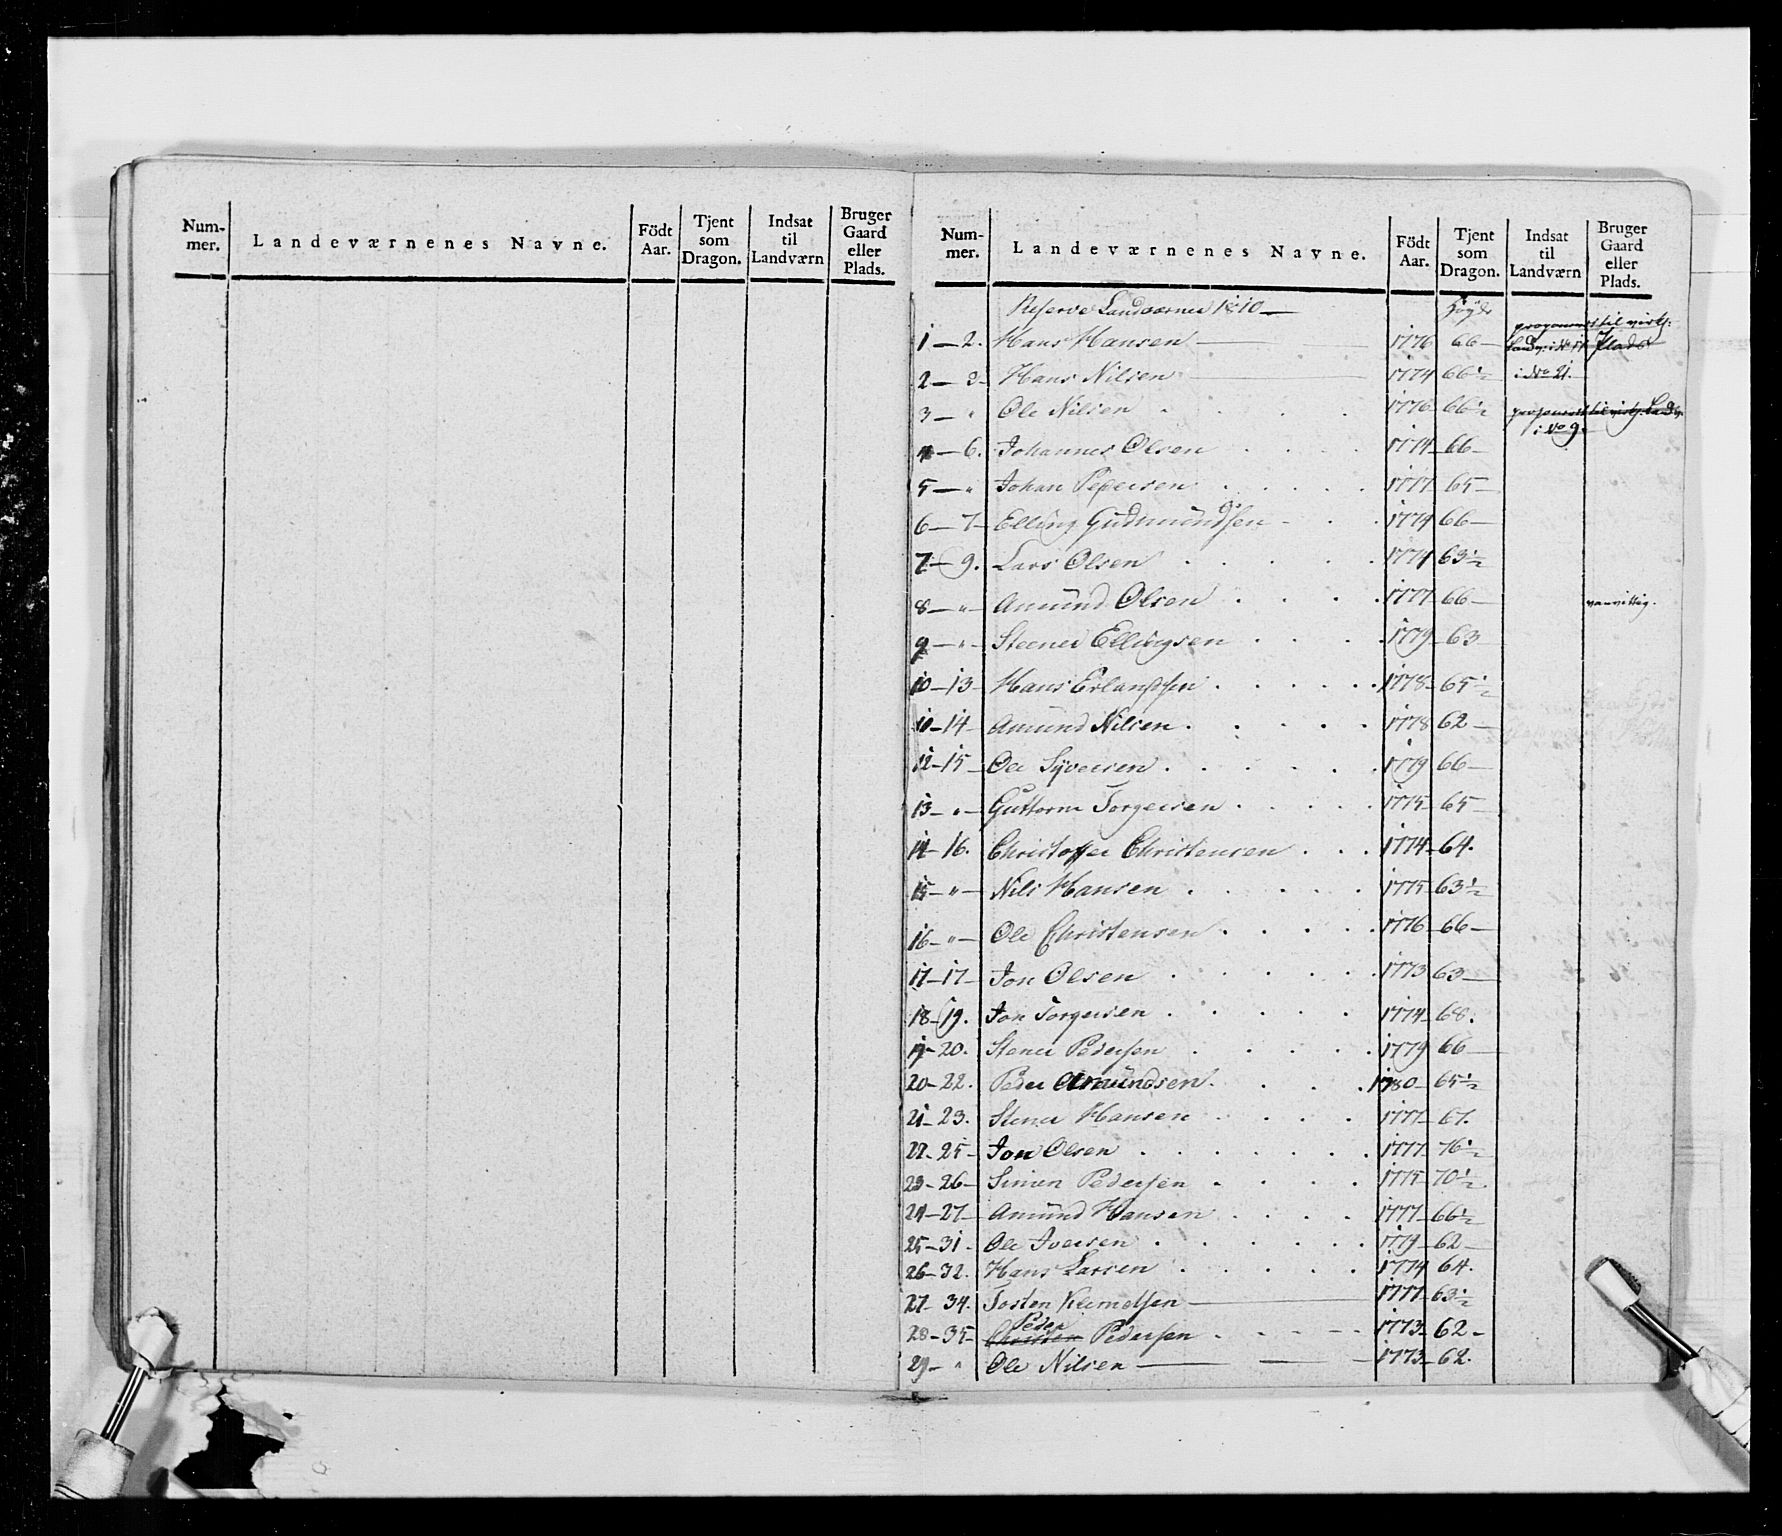 Num-mer. Landeværnenes Navne. Födt Aar. Tjent som Dragon. Indsat til Landværn Bruger Gaard eller Plads.
Num-mer. Landeværnenes Navne. Födt Aar. Tjent som Dragon. Indsat til Landværn Bruger Gaard eller Plads.
Reserve Landværner 1810 —
1 — 2. Hans Hansen — 1776 66 — Plads
2 — 3 — Hans Nilsen — 1774 66½ i No 21.
3 — " Ole Nilsen 1776 66½ i No 9.
4 — 6. Johannes Olsen 1774 66 —
5 — " Johan Pedersen 1777 65 —
6 — 7 — Elling Gudmundsen 1774 66 —
7 — 9. Lars Olsen 1774 63½
8 — " — Amund Olsen 1777 66 — vanvittig.
9 — " — Steener Ellingsen 1779 63
10 — 13 — Hans Erlandsen 1778 65½
11 — 14 — Amund Nilsen 1778 62 —
12 — 15 — Ole Syversen 1779 66 —
13 — " — Guttorm Torgersen 1775 65 —
14 — 16. Christoffer Christensen 1774 64.
15 — " — Nils Hansen 1775 63½
16 — " — Ole Christensen 1776 66 —
17 — 17 — Jon Olsen 1773 63 —
18 — 19. Jon Torgersen 1774 68.
19 — 20. Stener Pedersen 1779 66 —
20 — 22. Peder Amundsen 1780 65½
21 — 23. Stener Hansen 1777 67.
22 — 25 — Jon Olsen 1777 76½
23 — 26 — Simen Pedersen 1775 70½
24 — 27 — Amund Hansen 1777 66½
25 — 31 — Ole Iversen 1779 62 —
26 — 32. Hans Larsen 1774 64.
27 — 34. Tosten Klemetsen — 1777 63½
28 — 35 — Christen Peder Pedersen 1773 62 —
29 — " Ole Nilsen — 1773 62.